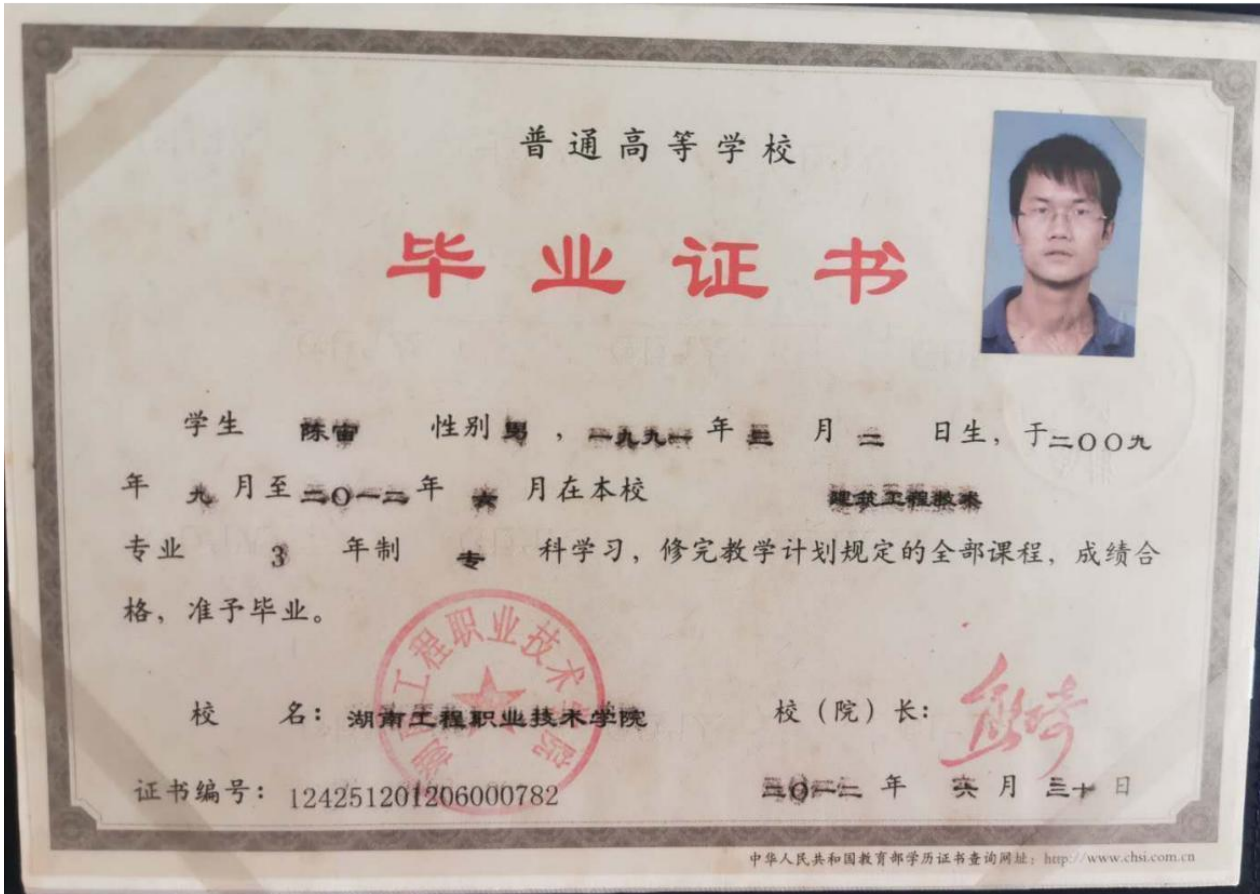 普通高等学校
毕业证书
学生 陈宙 性别 男 , 一九九一 年 三 月 二 日生, 于二〇〇九
年 九 月至 二〇一二 年 六 月在本校 建筑工程技术
专业 3 年制 专 科学习, 修完教学计划规定的全部课程, 成绩合
格, 准予毕业。
湖南工程职业技术学院
校 名: 湖南工程职业技术学院 校(院)长:
证书编号: 124251201206000782 二〇一二 年 六 月 三十 日
中华人民共和国教育部学历证书查询网址: http://www.chsi.com.cn